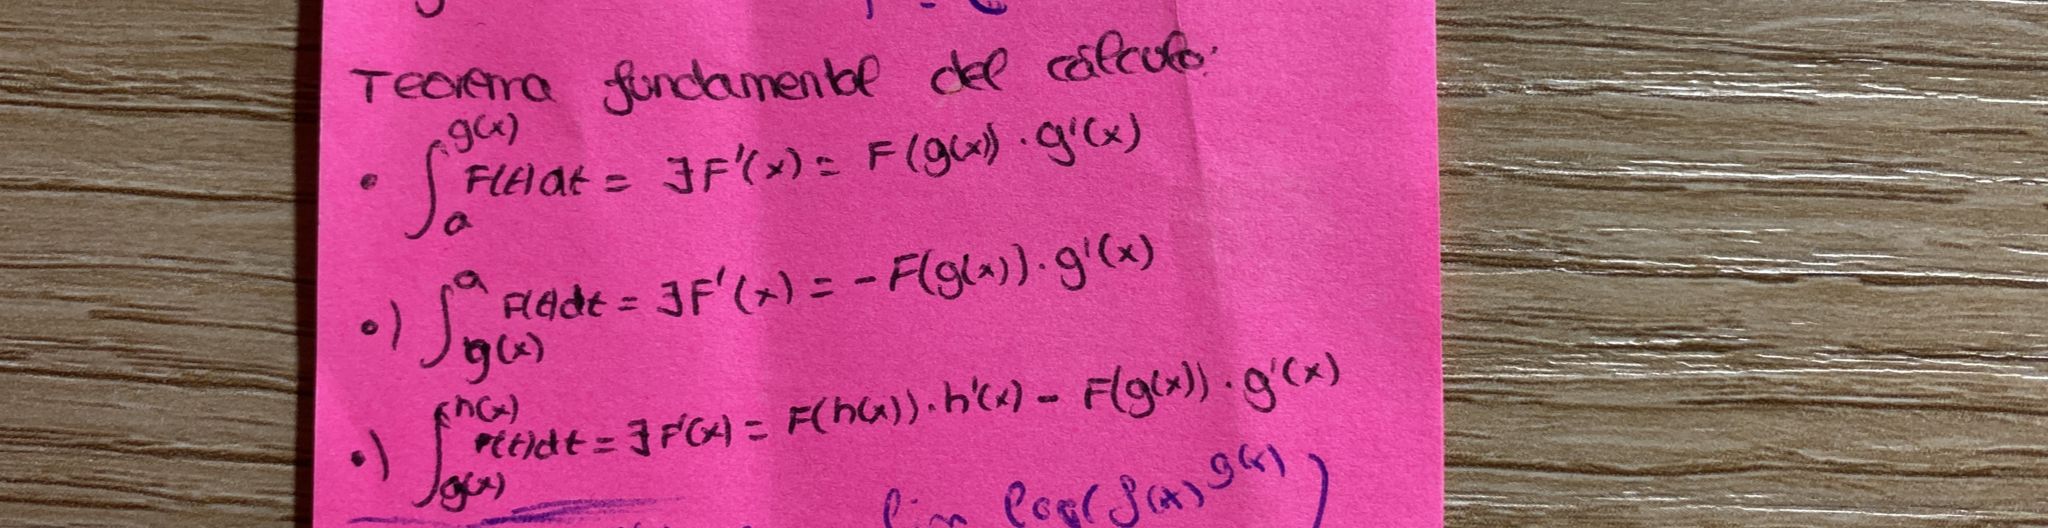 Teorema fundamental del cálculo:
• ∫_a^{g(x)} F(t)dt = ∃F'(x) = F(g(x)) · g'(x)
•) ∫_{g(x)}^a F(t)dt = ∃F'(x) = -F(g(x)) · g'(x)
•) ∫_{g(x)}^{h(x)} F(t)dt = ∃F'(x) = F(h(x)) · h'(x) - F(g(x)) · g'(x)
lim log(f(x)^{g(x)})